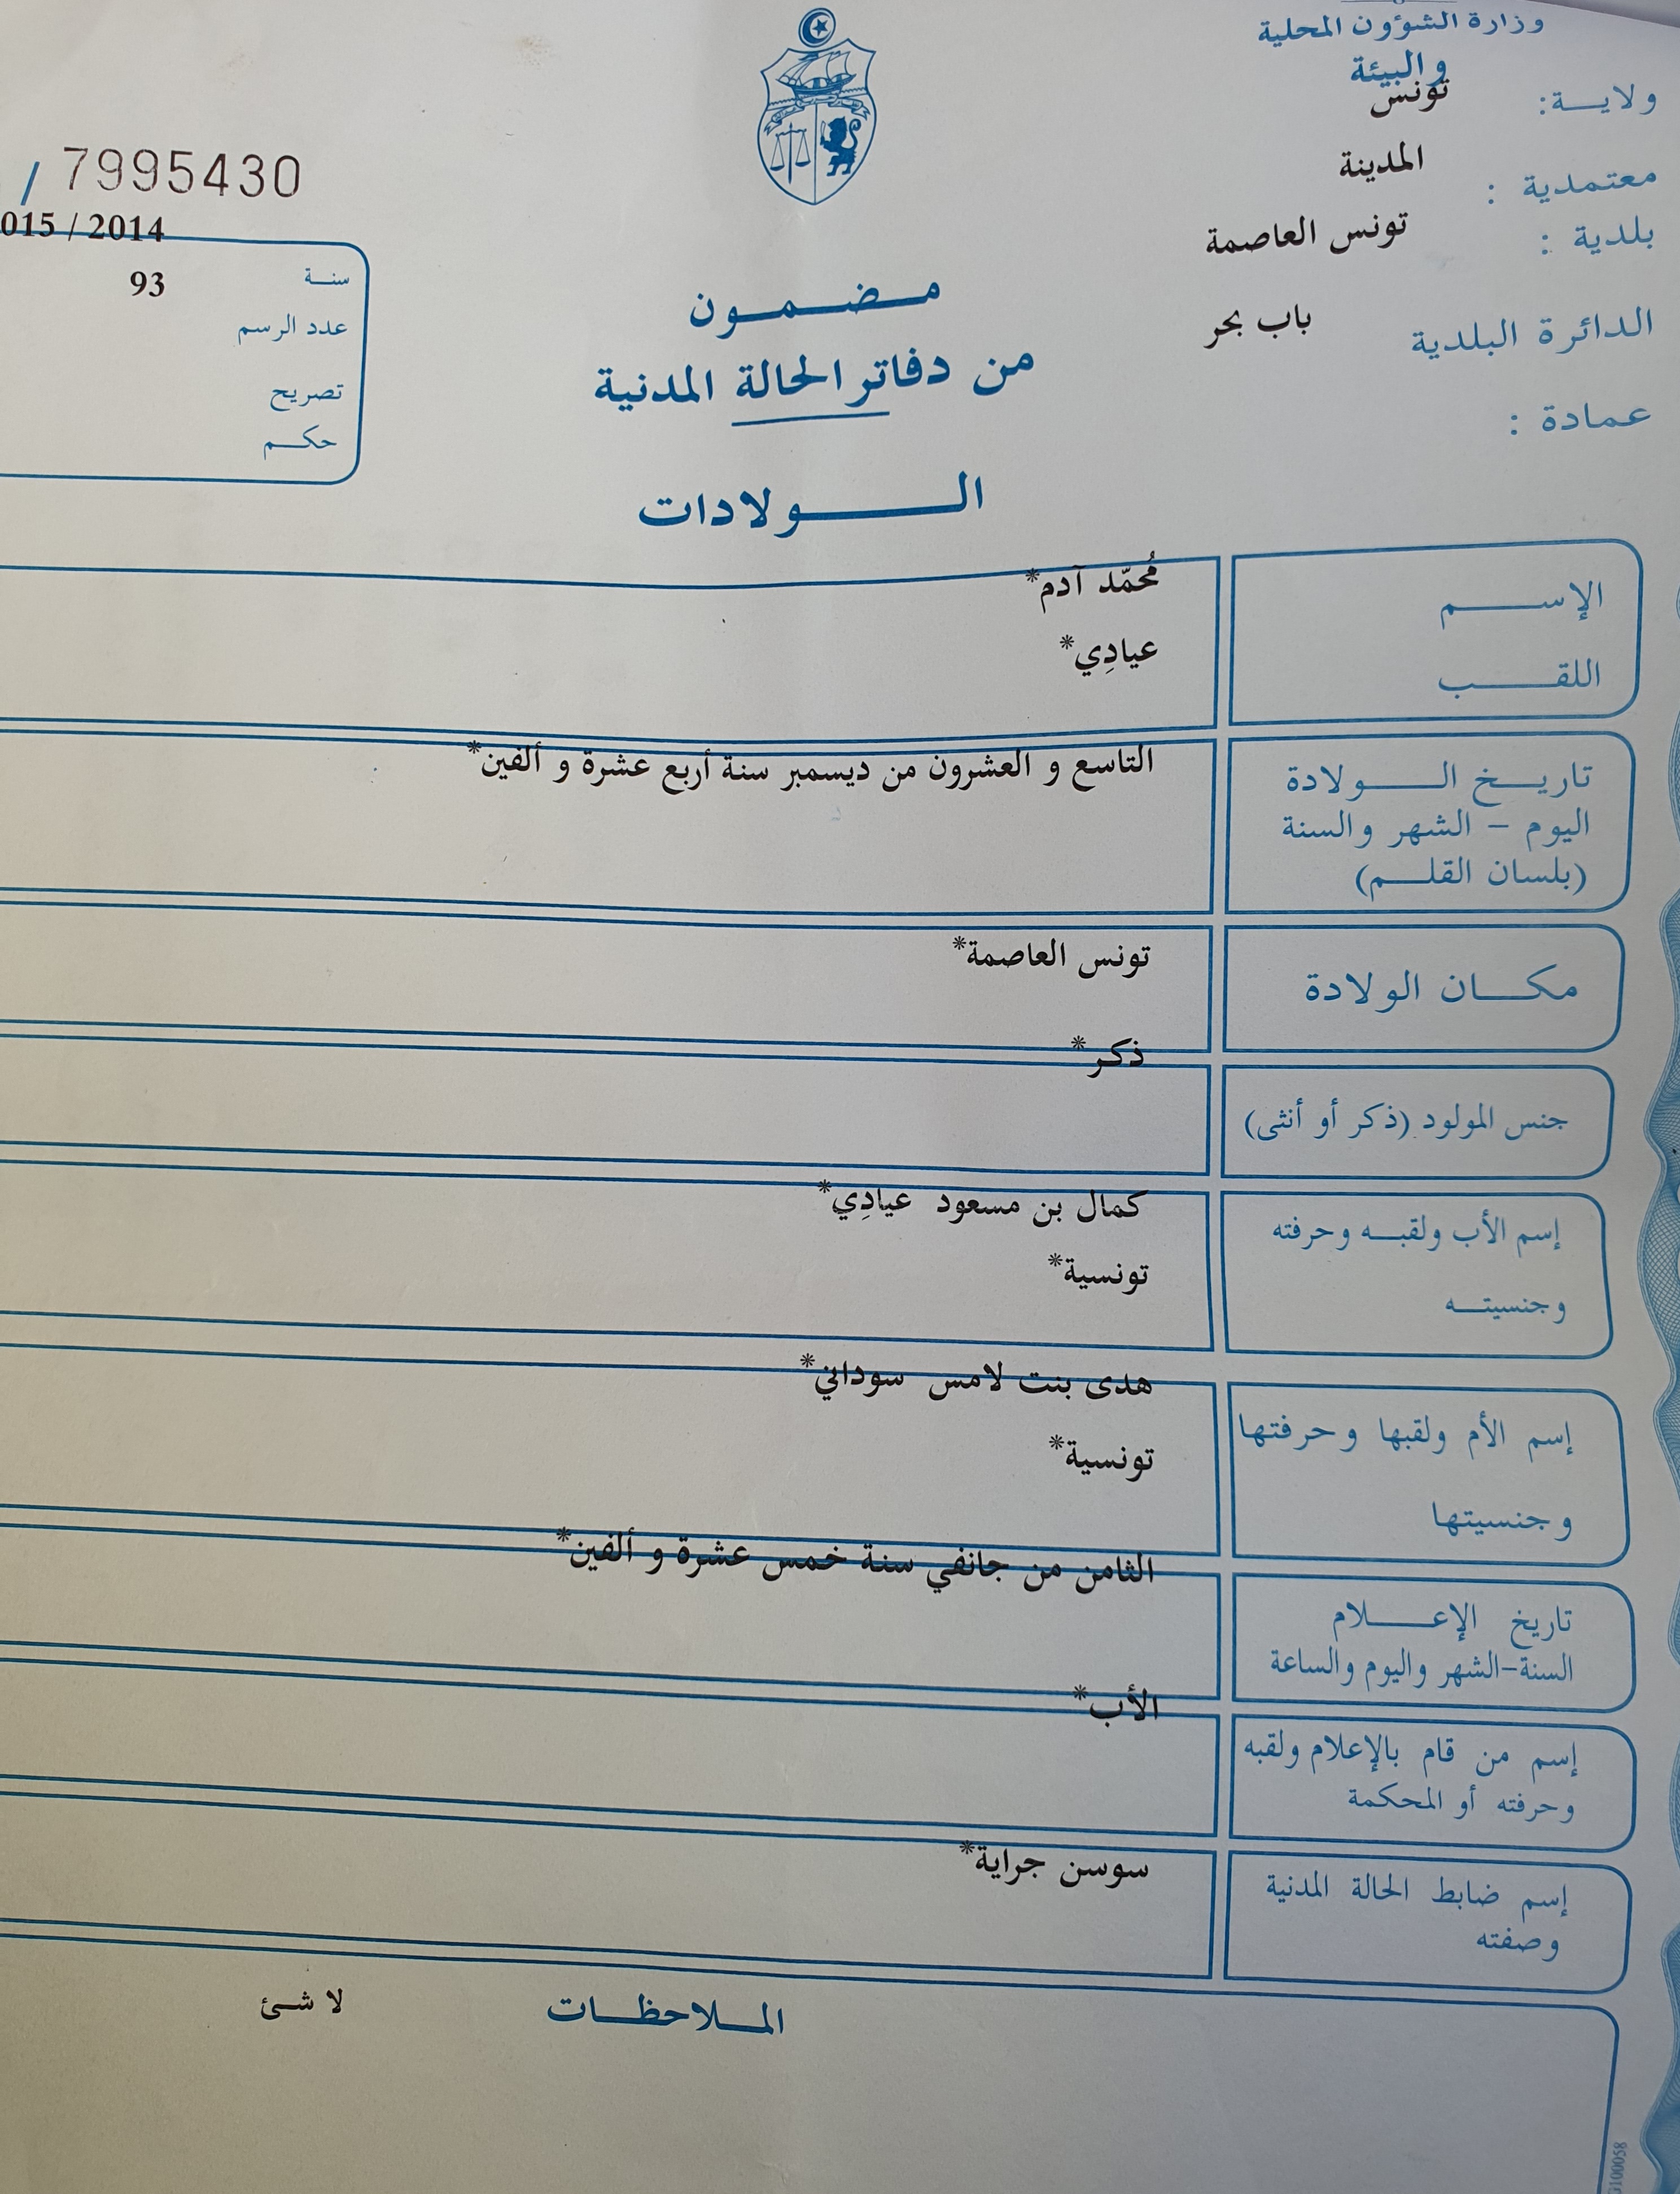 وزارة الشؤون المحلية
والبيئة
ولاية: تونس
معتمدية : المدينة
بلدية : تونس العاصمة
الدائرة البلدية باب بحر
عمادة :
/ 7995430
015 / 2014
سنة
93
عدد الرسم
تصريح
حكم
مضمون
من دفاتر الحالة المدنية
الولادات
الإسم مُحمّد آدم*
اللقب عيادِي*
تاريخ الولادة التاسع و العشرون من ديسمبر سنة أربع عشرة و ألفين*
اليوم – الشهر والسنة
(بلسان القلم)
مكان الولادة تونس العاصمة*
جنس المولود (ذكر أو أنثى) ذكر*
إسم الأب ولقبه وحرفته كمال بن مسعود عيادِي*
وجنسيته تونسية*
إسم الأم ولقبها وحرفتها هدى بنت لامس سوداني*
وجنسيتها تونسية*
تاريخ الإعلام الثامن من جانفي سنة خمس عشرة و ألفين*
السنة-الشهر واليوم والساعة
إسم من قام بالإعلام ولقبه الأب*
وحرفته أو المحكمة
إسم ضابط الحالة المدنية سوسن جراية*
وصفته
الملاحظات لا شئ